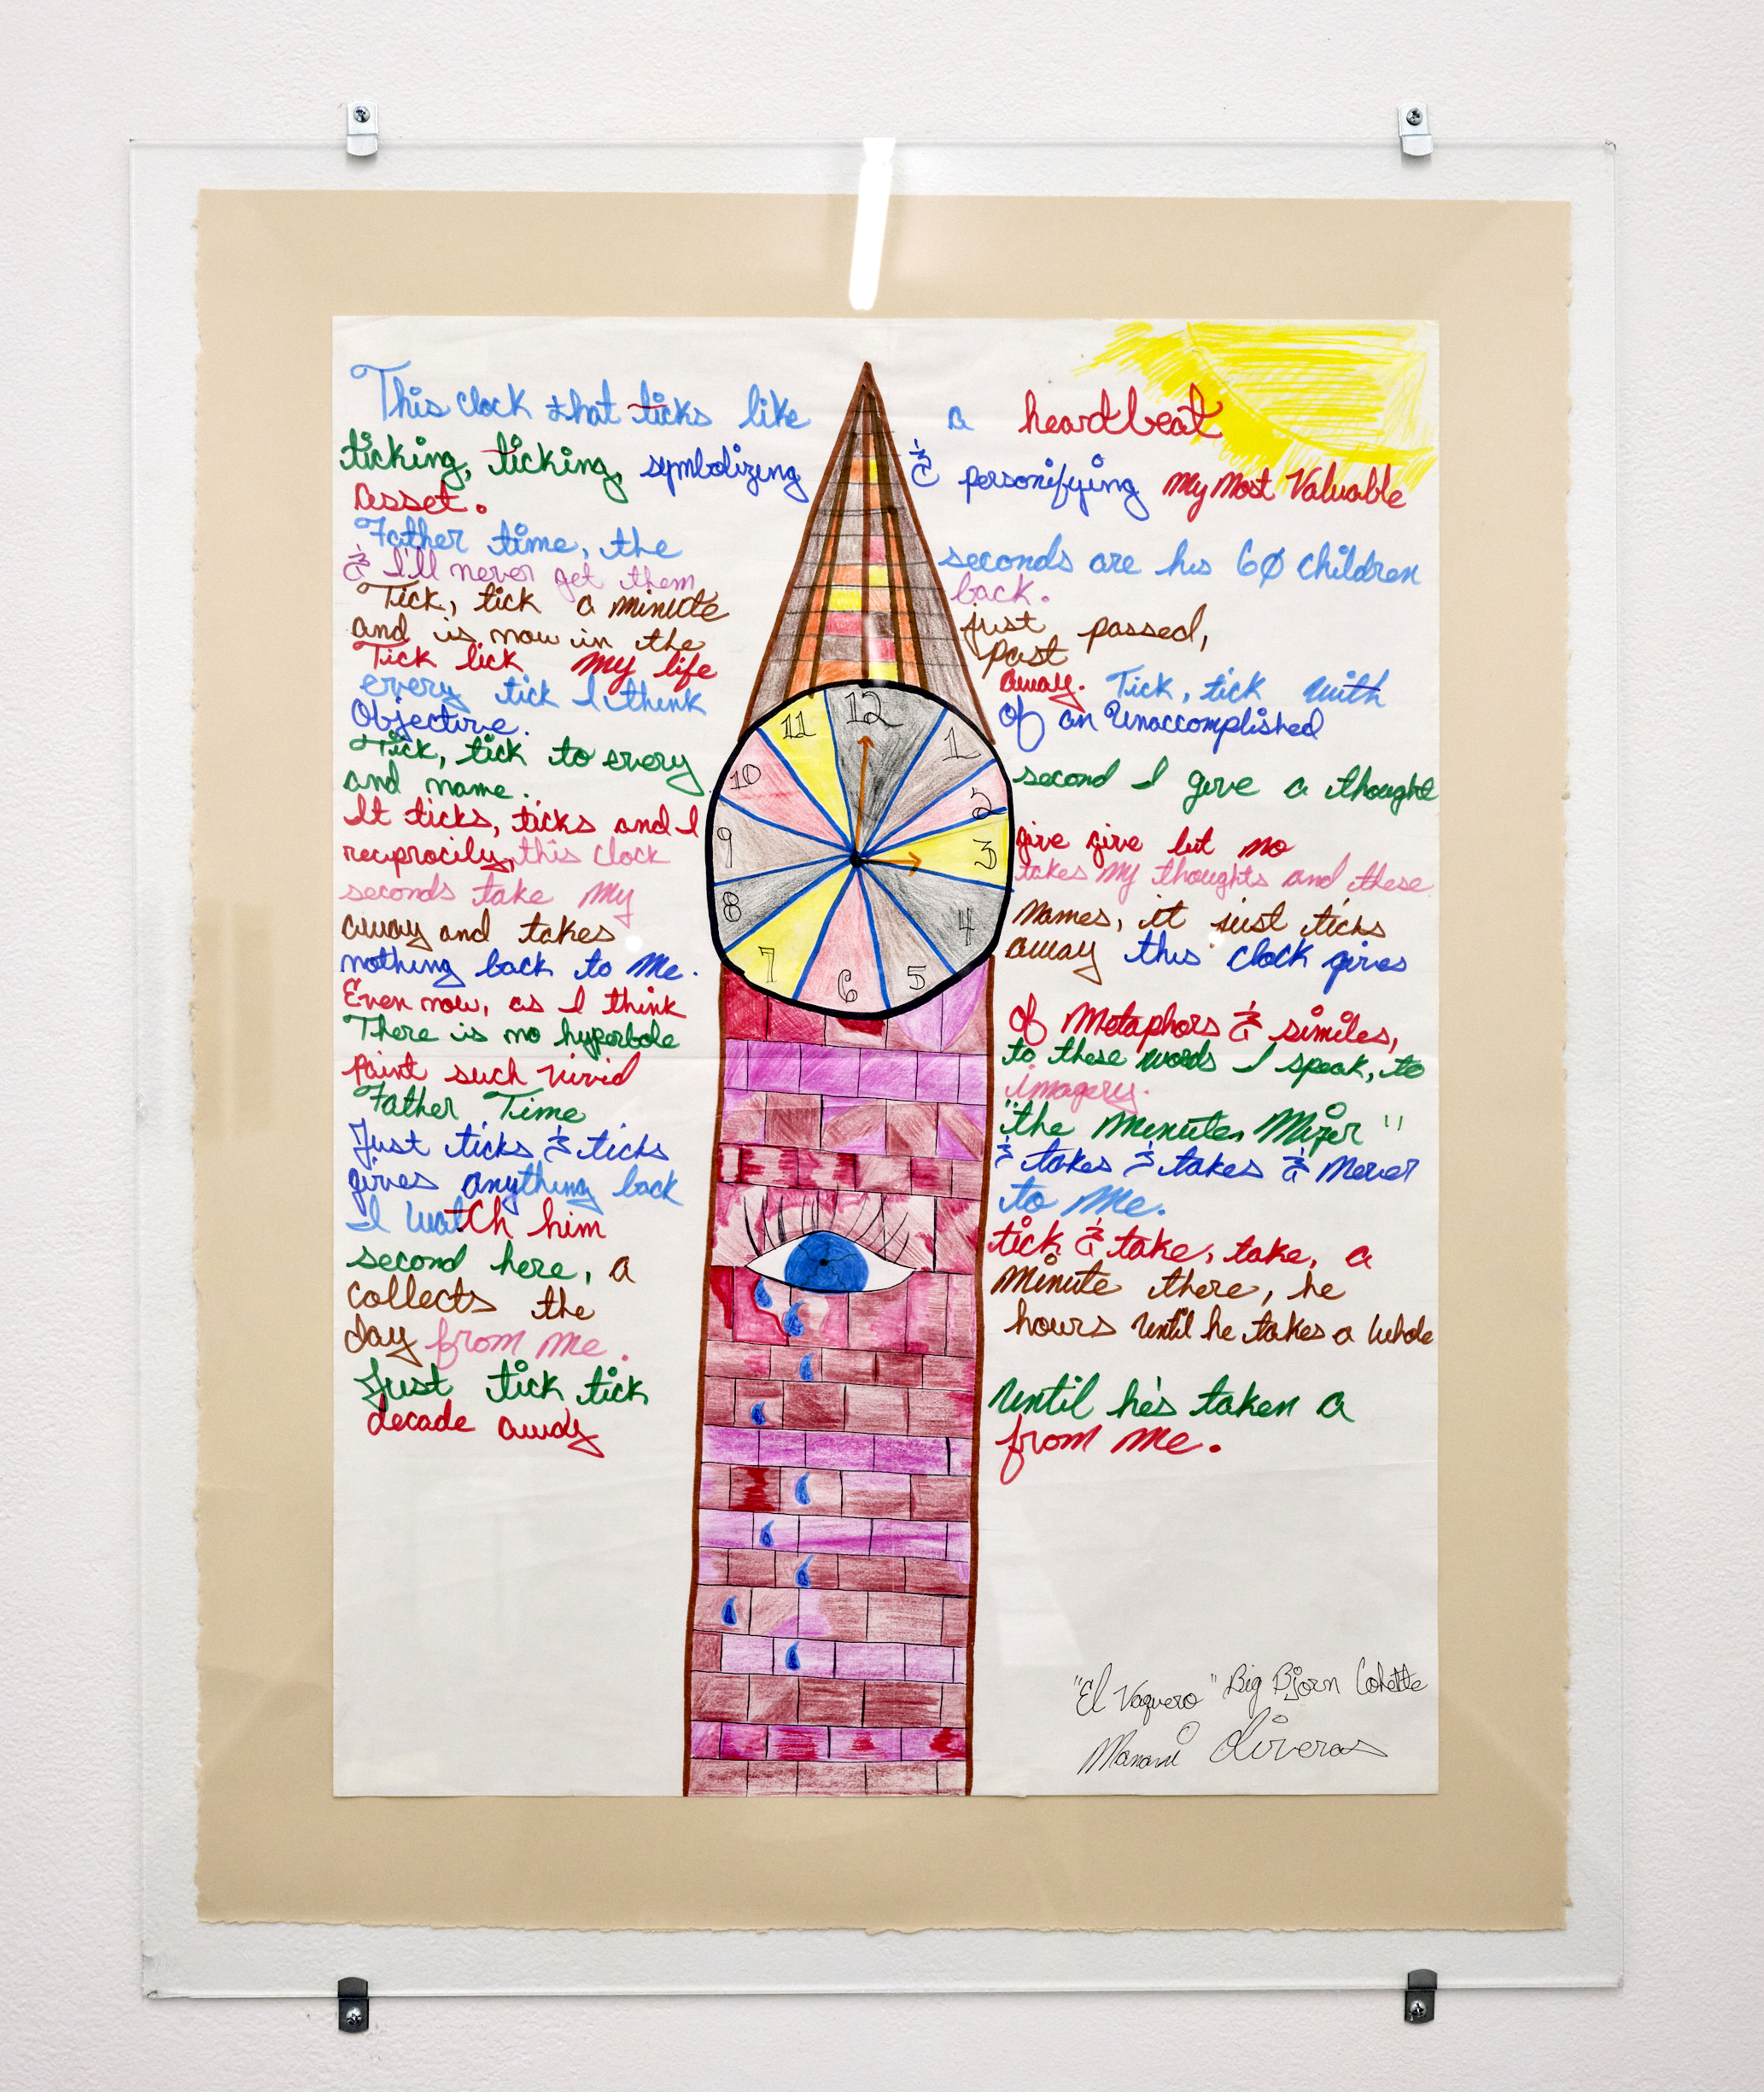 This clock that ticks like a heartbeat
ticking, ticking, symbolizing & personifying My Most Valuable
asset.
Father time, the seconds are his 60 children
& I'll never get them back.
Tick, tick a minute just passed,
and is now in the past
Tick tick my life away. Tick, tick with
every tick I think of an Unaccomplished
Objective.
Tick, tick to every second I give a thought
and name.
It ticks, ticks and I give give but no
reciprocity, this clock takes My thoughts and these
seconds take My Names, it just ticks
away and takes away this clock gives
nothing back to Me.
Even now, as I think of Metaphors & similes,
There is no hyperbole to these words I speak, to
paint such vivid imagery.
Father Time "the Minute Mizer"
Just ticks & ticks & takes & takes & Never
gives anything back to Me.
I watch him tick & take, take, a
second here, a Minute there, he
collects the hours Until he takes a Whole
day from Me.
Just tick tick Until he's taken a
decade away from Me.
12
11 1
10 2
9 3
8 4
7 5
6
"El Vaquero" Big Bjorn Cohette